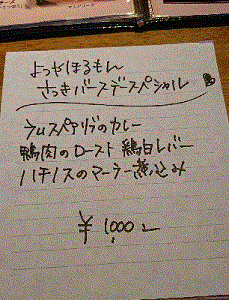 よつやほるもん
さつきバースデースペシャル
ラムスペアリブのカレー
鴨肉のロースト 鶏白レバー
ハチノスのマーラー煮込み
¥1000-